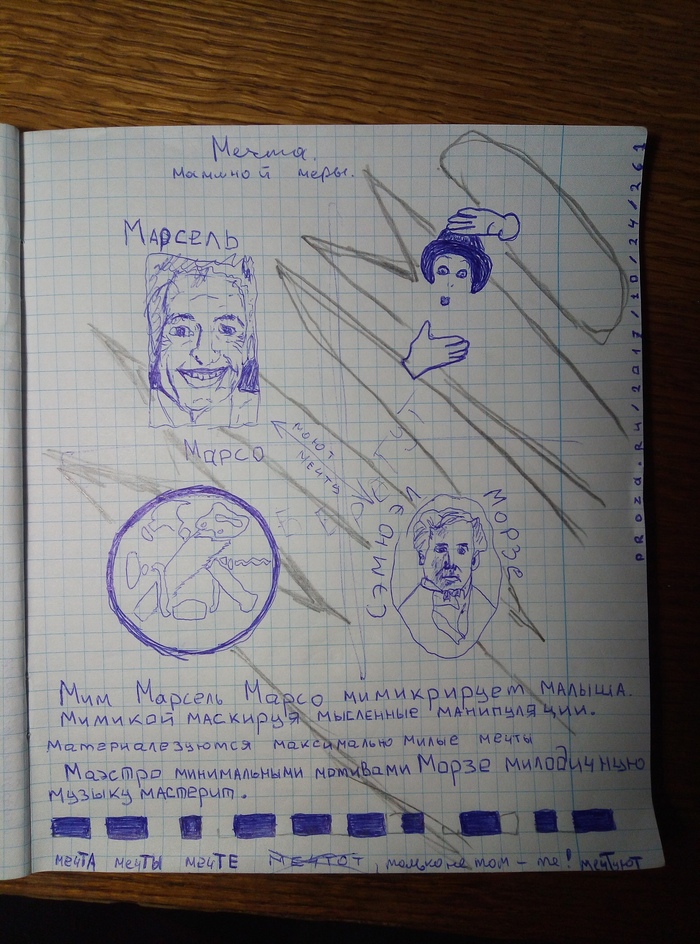 Мечта.
маминой меры.
Марсель
Марсо
поют
мечты
Сэмюэл
Морзе
proza.ru/2017/10/24/261
Мим Марсель Марсо мимикрирует малыша.
Мимикой маскируя мысленные манипуляции.
Материалезуются максимально милые мечты
Маэстро минимальными мотивами Морзе милодичную
музыку мастерит.
мечТА мечТЫ мечТЕ мечТОТ, только не тот - те! мечТуюТ